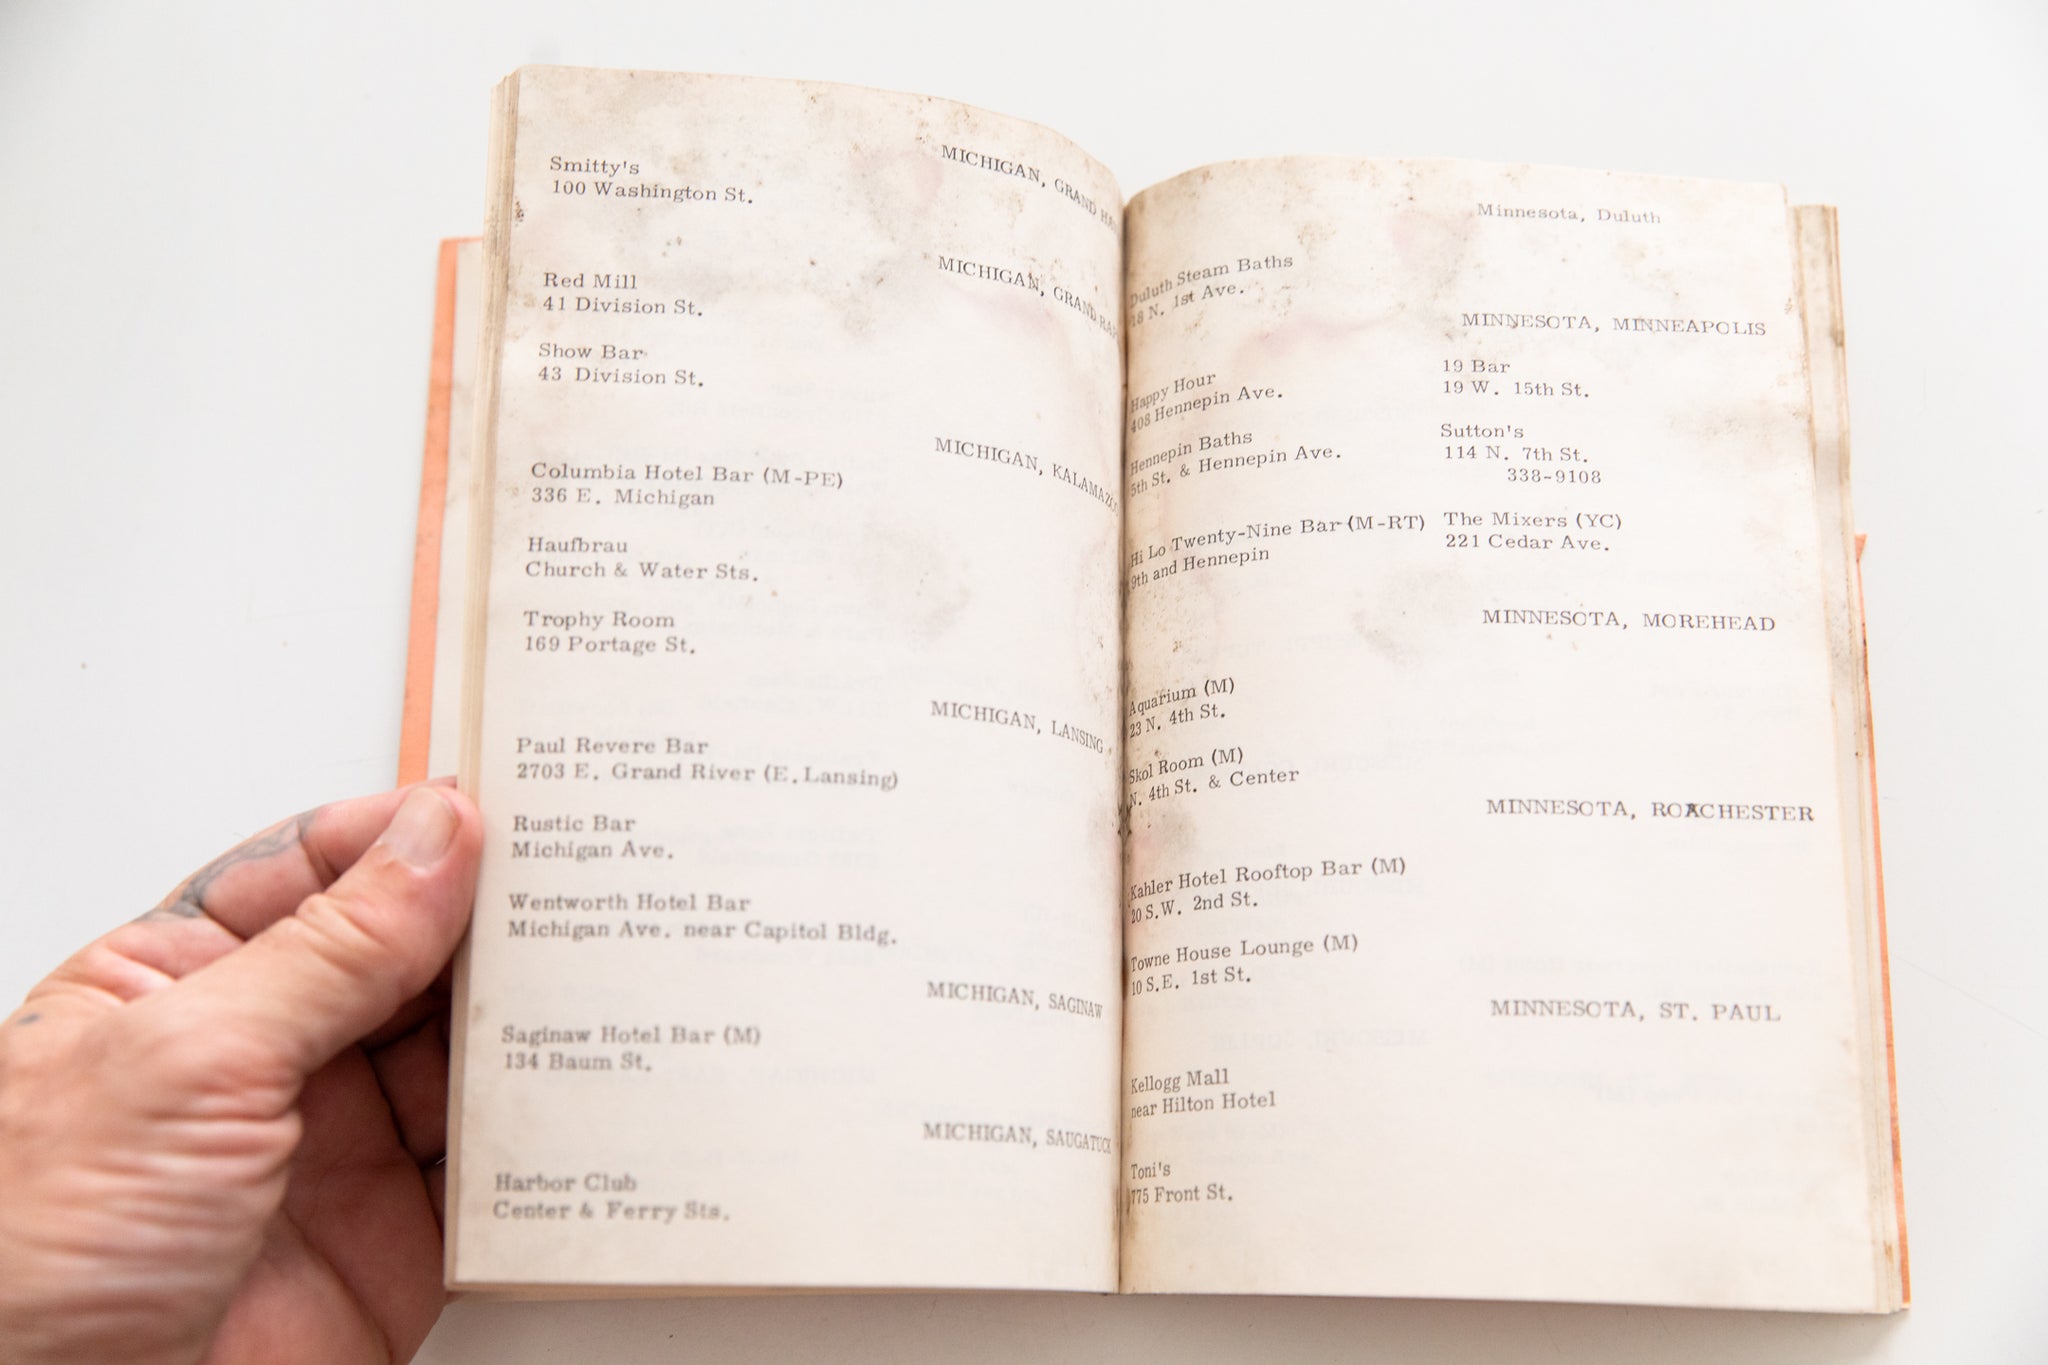 MICHIGAN, GRAND HA
Smitty's
100 Washington St.
MICHIGAN, GRAND RA
Red Mill
41 Division St.
Show Bar
43 Division St.
MICHIGAN, KALAMAZOO
Columbia Hotel Bar (M-PE)
336 E. Michigan
Haufbrau
Church & Water Sts.
Trophy Room
169 Portage St.
MICHIGAN, LANSING
Paul Revere Bar
2703 E. Grand River (E. Lansing)
Rustic Bar
Michigan Ave.
Wentworth Hotel Bar
Michigan Ave. near Capitol Bldg.
MICHIGAN, SAGINAW
Saginaw Hotel Bar (M)
134 Baum St.
MICHIGAN, SAUGATUCK
Harbor Club
Center & Ferry Sts.
Minnesota, Duluth
Duluth Steam Baths
18 N. 1st Ave.
MINNESOTA, MINNEAPOLIS
Happy Hour
408 Hennepin Ave.
Hennepin Baths
5th St. & Hennepin Ave.
Hi Lo Twenty-Nine Bar (M-RT)
9th and Hennepin
19 Bar
19 W. 15th St.
Sutton's
114 N. 7th St.
338-9108
The Mixers (YC)
221 Cedar Ave.
MINNESOTA, MOREHEAD
Aquarium (M)
23 N. 4th St.
Skol Room (M)
N. 4th St. & Center
MINNESOTA, ROACHESTER
Kahler Hotel Rooftop Bar (M)
20 S.W. 2nd St.
Towne House Lounge (M)
10 S.E. 1st St.
MINNESOTA, ST. PAUL
Kellogg Mall
near Hilton Hotel
Toni's
775 Front St.